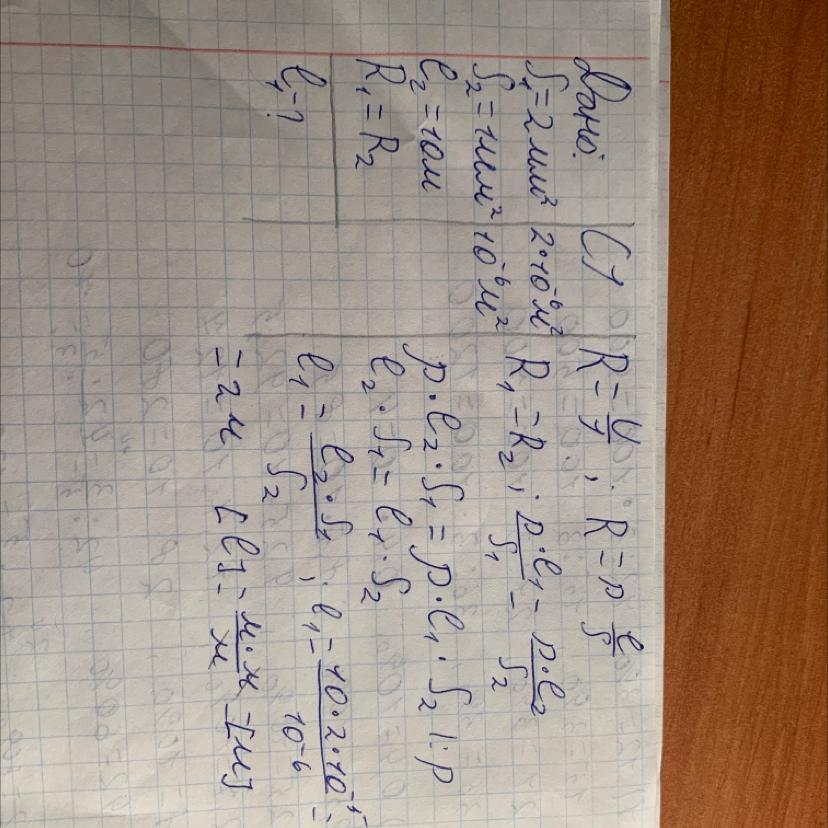 Дано:
S₁=2мм² 2·10⁻⁶м²
S₂=1мм² 10⁻⁶м²
l₂=10м
R₁=R₂
l₁-?
СИ
R=U/I; R=ρ l/S
R₁=R₂; ρ·l₁/S₁=ρ·l₂/S₂
ρ·l₂·S₁=ρ·l₁·S₂ |:ρ
l₂·S₁=l₁·S₂
l₁=l₂·S₁/S₂; l₁=10·2·10⁻/10⁻⁶=
=2м [l]=м·м/м=[м]